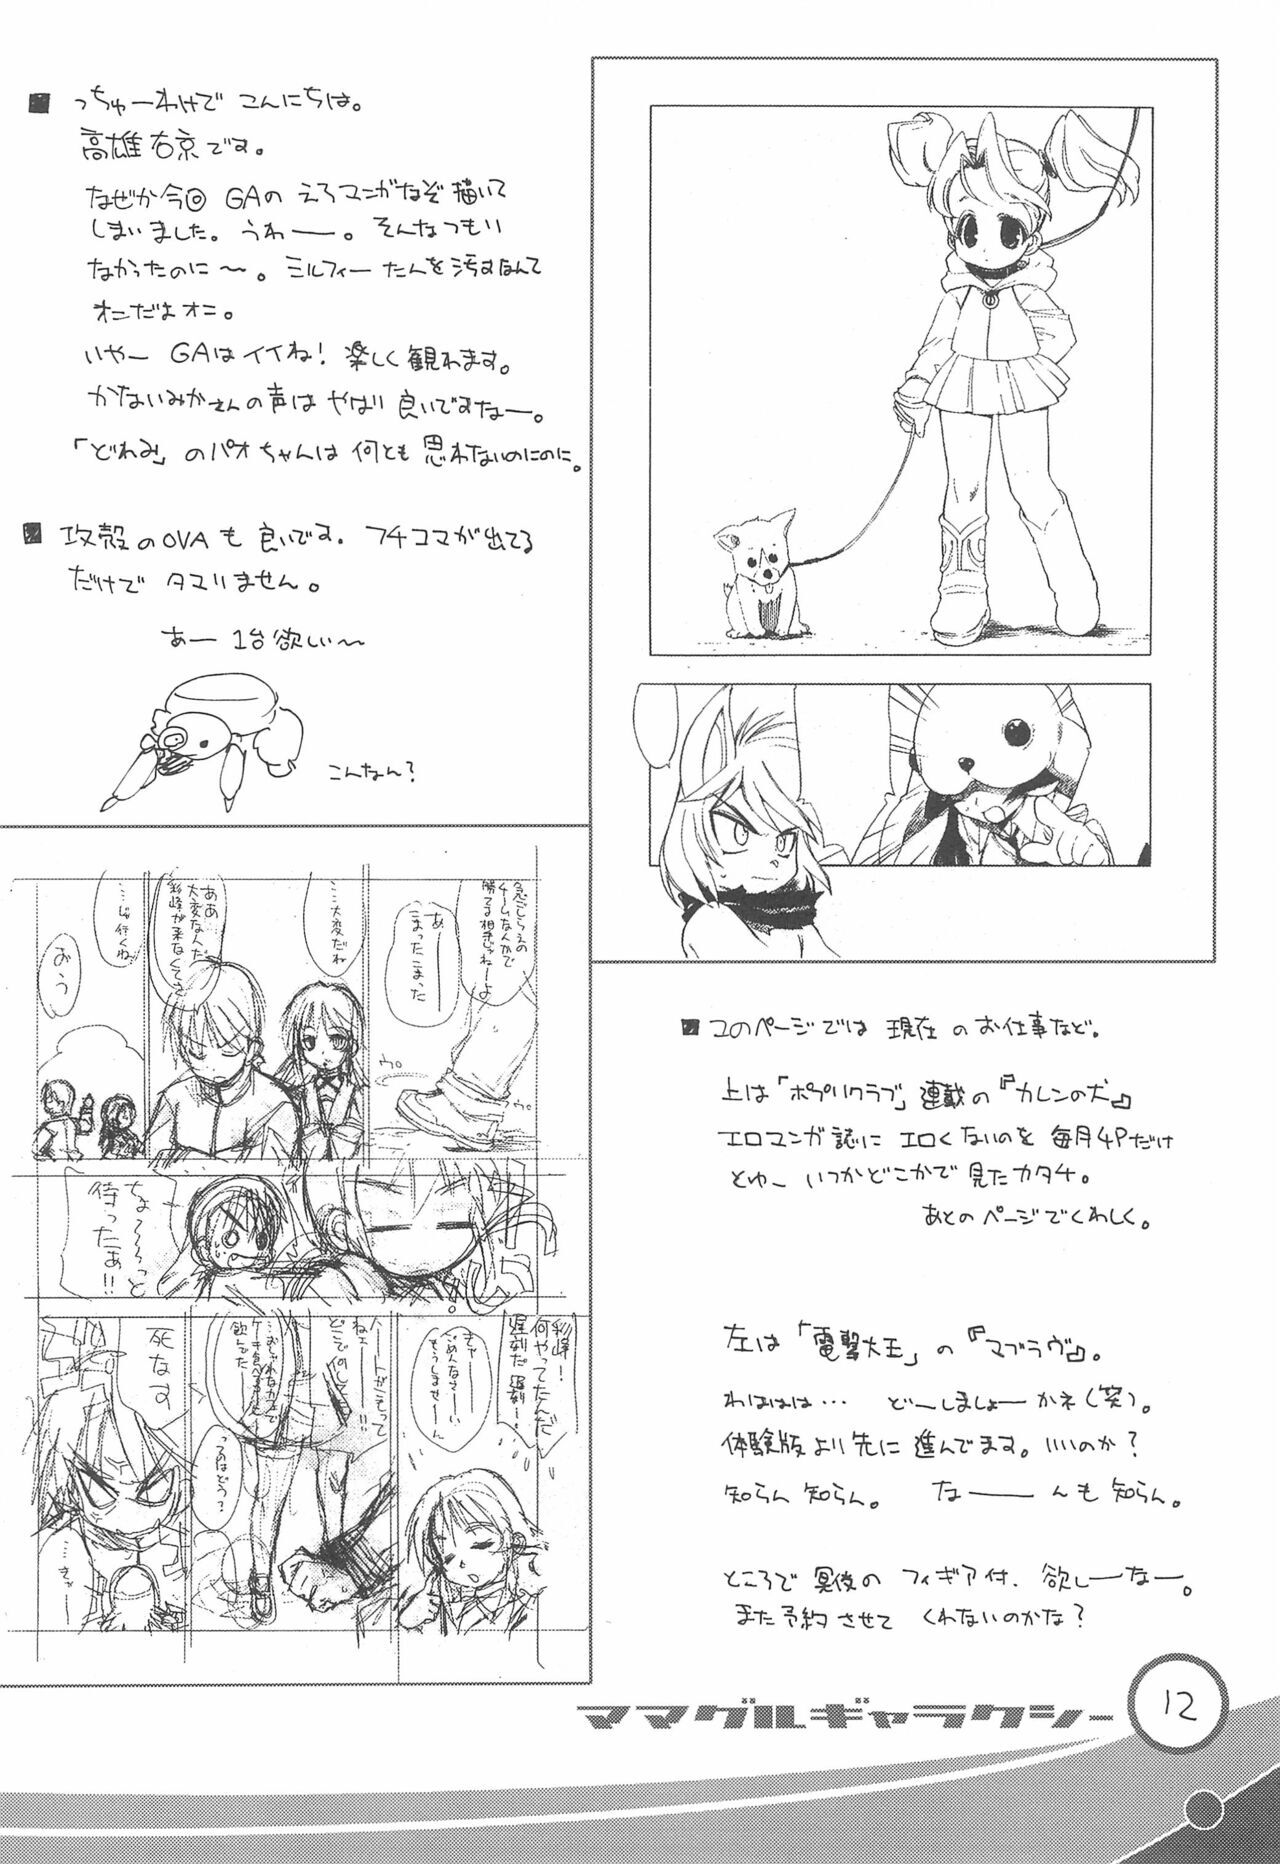 ■ っちゅーわけで こんにちは。
高雄右京です。
なぜか今回 GAの えろマンガなぞ 描いて
しまいました。うわーー。そんなつもり
なかったのに〜。ミルフィーたんを汚すなんて
オニだよオニ。
いやー GAはイイね! 楽しく観れます。
かないみかさんの声は やはり 良いですなー。
「どれみ」のパオちゃんは 何とも 思わないのにのに。
■ 攻殻のOVAも 良いです。フチコマが出てる
だけで タマリません。
あー 1台欲しい〜
こんなん?
■ このページでは 現在 のお仕事など。
上は「ポプリクラブ」連載の『カレンの犬』
エロマンガ誌に エロくないのを 毎月4Pだけ
とゆー いつかどこかで 見たカタチ。
あとのページでくわしく。
左は「電撃大王」の『マブラヴ』。
わははは… どーしましょーかネ(笑)。
体験版より先に 進んでます。いいのか?
知らん 知らん。 なーーーんも 知らん。
ところで 冥夜の フィギア付、欲しーなー。
また予約させて くれないのかな?
急ごしらえの
チームなんかで
勝てる相手じゃねーよ
あー
まったまった
…大変だね
ああ
大変なんだ
彩峰が来なくてさ
…じゃ行くね
おう
ちょ〜〜っと
待ったぁ!!
彩峰!
何やってたんだ
遅刻だ 遅刻!
きゃー
ごめんなさーい
もうしませーん
死なす
ママグルギャラクシー
12